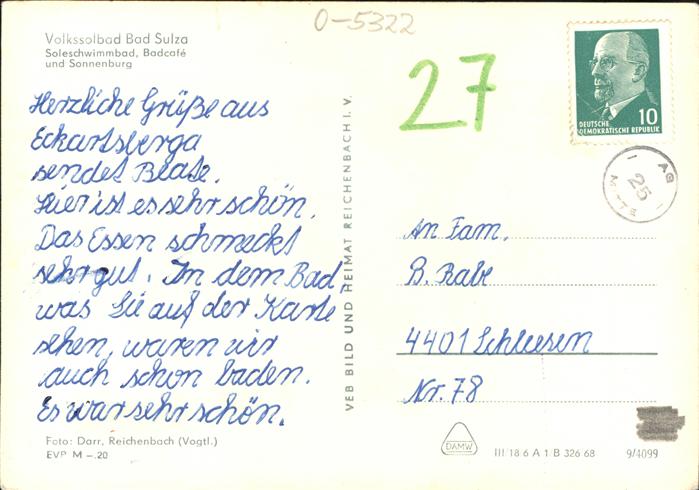 O-5322
Volkssolbad Bad Sulza
Soleschwimmbad, Badcafé
und Sonnenburg
Herzliche Grüße aus
Eckartsberga
sendet Beate.
Hier ist es sehr schön.
Das Essen schmeckt
sehr gut. In dem Bad,
was Sie auf der Karte
sehen, waren wir
auch schon baden.
Es war sehr schön.
Foto: Darr, Reichenbach (Vogtl.)
EVP M –.20
VEB BILD UND HEIMAT REICHENBACH I. V.
27
10
DEUTSCHE
DEMOKRATISCHE REPUBLIK
25
An Fam.
B. Rabe
4401 Schleesen
Nr. 78
DAMW
III 18 6 A 1 B 326 68
9/4099